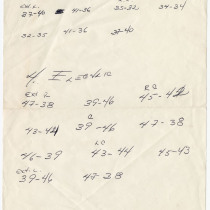 Ext. L.
37-40 41-36 35-32 34-34
32-35 41-36 32-40
4. ELEBKRIC
Ext L RO
47-38 39-46 45-42
O
43-44 39-46 47-38
LO
46-39 43-44 45-43
Ext. L
39-46 47-38